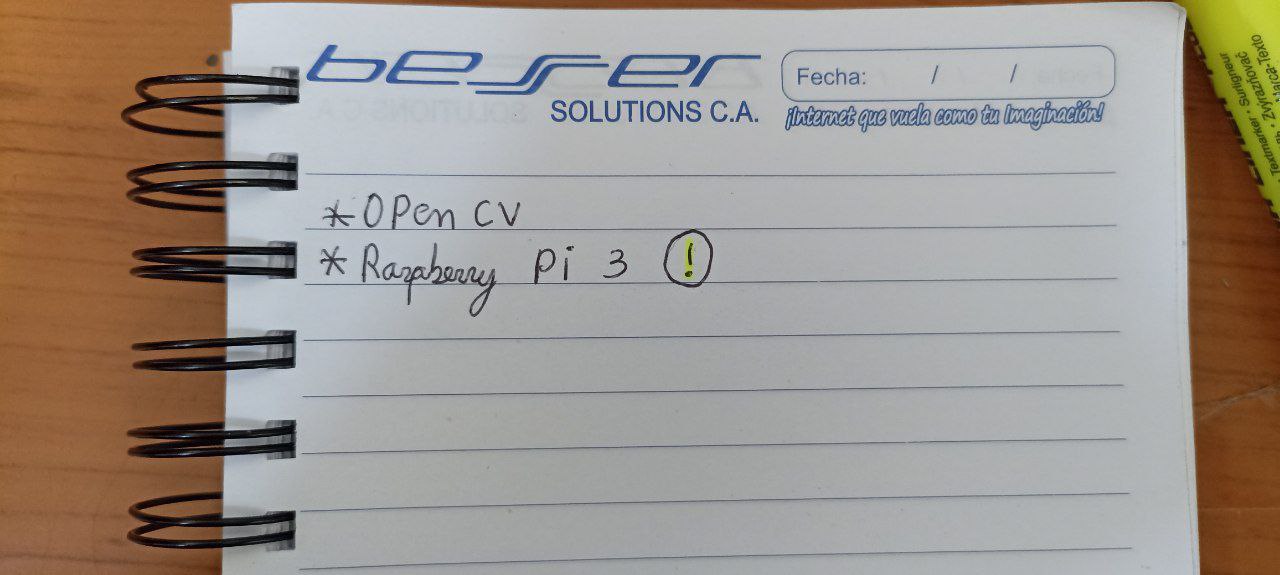 besser
SOLUTIONS C.A.
Fecha: / /
¡Internet que vuela como tu Imaginación!
* OPen CV
* Razpberry Pi 3 !
Textmarker . Surligneur
Zvýrazňovač
Marca-Texto